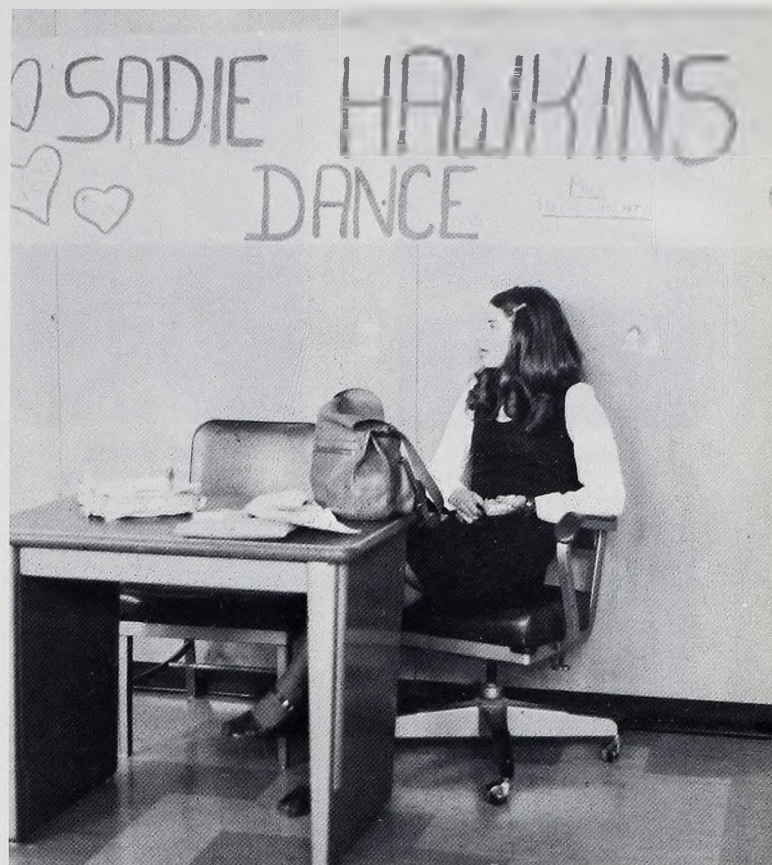 SADIE HAWKINS
DANCE